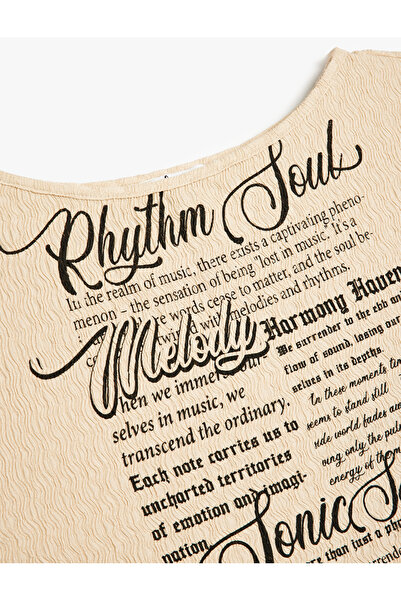 Rhythm Soul
In the realm of music, there exists a captivating pheno-
menon – the sensation of being "lost in music." It's a
words cease to matter, and the soul be-
with melodies and rhythms.
Melody
hen we immerse our
selves in music, we
transcend the ordinary.
Each note carries us to
uncharted territories
of emotion and imagi-
nation.
Harmony Haven
We surrender to the ebb and
flow of sound, losing our
selves in its depths.
In these moments
seems to stand still
side world fades
ing only the
energy of
Sonic
than just a